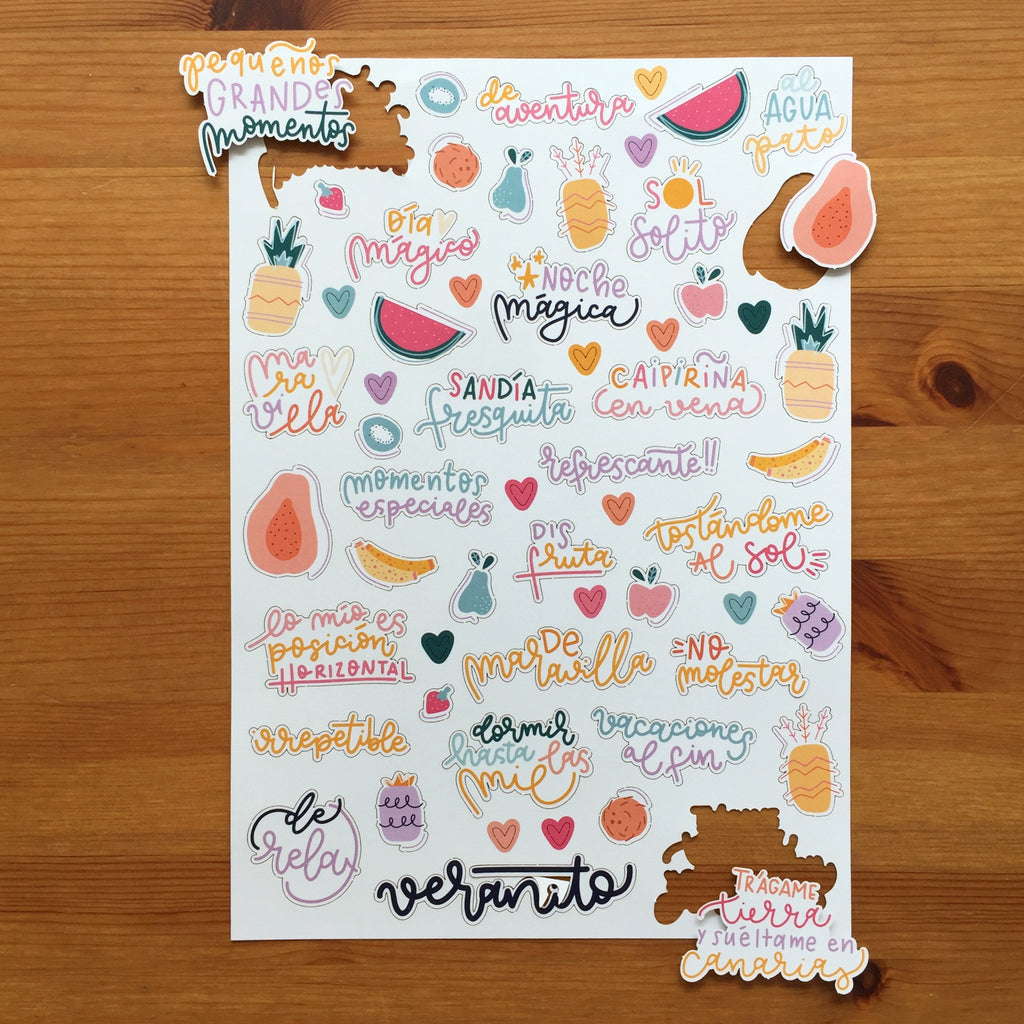 pequeños
GRANDES
momentos
de
aventura
al
AGUA
pato
DÍA
mágico
SOL
solito
NOCHE
mágica
ma
ra
villa
SANDÍA
fresquita
CAIPIRIÑA
en vena
momentos
especiales
refrescante!!
DIS
fruta
tostándome
AL SOL
lo mío es
posición
HORIZONTAL
DE
maravilla
NO
molestar
irrepetible
dormir
hasta las
mil
vacaciones
al fin
de
relax
veranito
TRÁGAME
tierra
y suéltame en
Canarias